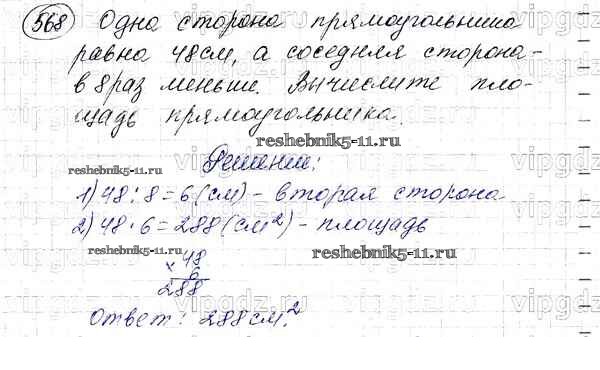 568 Одна сторона прямоугольника
равна 48см, а соседняя сторона -
в 8 раз меньше. Вычислите пло-
щадь прямоугольника.
reshebnik5-11.ru
Решение:
reshebnik5-11.ru
1) 48 : 8 = 6 (см) - вторая сторона
2) 48 · 6 = 288 (см²) - площадь
reshebnik5-11.ru
reshebnik5-11.ru
48
× 6
288
Ответ: 288см².
vipgdz